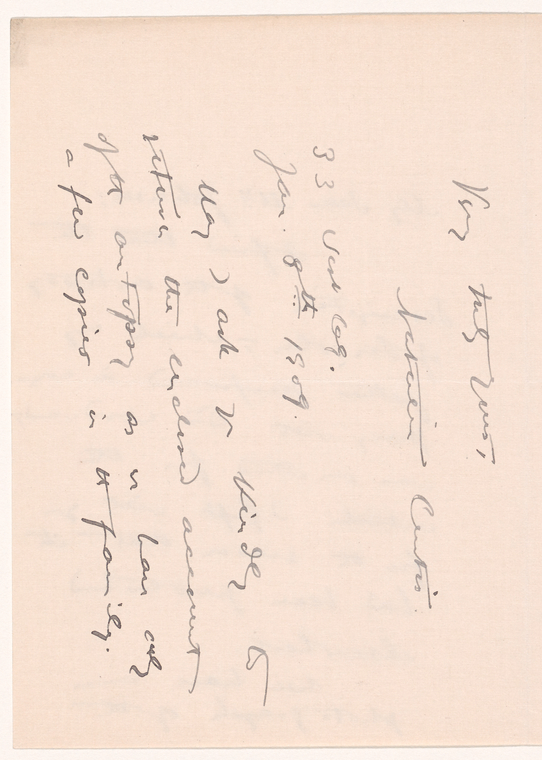 Very truly yours,
Natalie Curtis.
33 West 69.
Jan. 8th 1909.
May I ask you kindly to
return the enclosed account
of the autopsy as we have only
a few copies in the family.